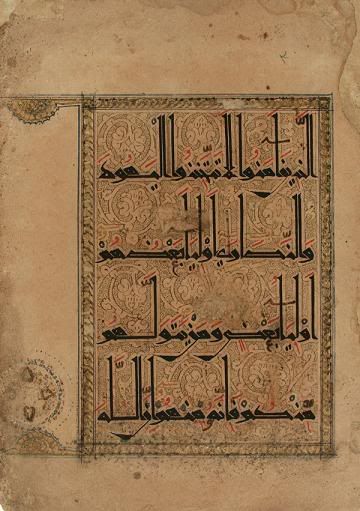 الذين امنوا لا تتخذوا اليهود
والنصارى اوليا بعضهم
اوليا بعض ومن يتولهم
منكم فانه منهم ان الله